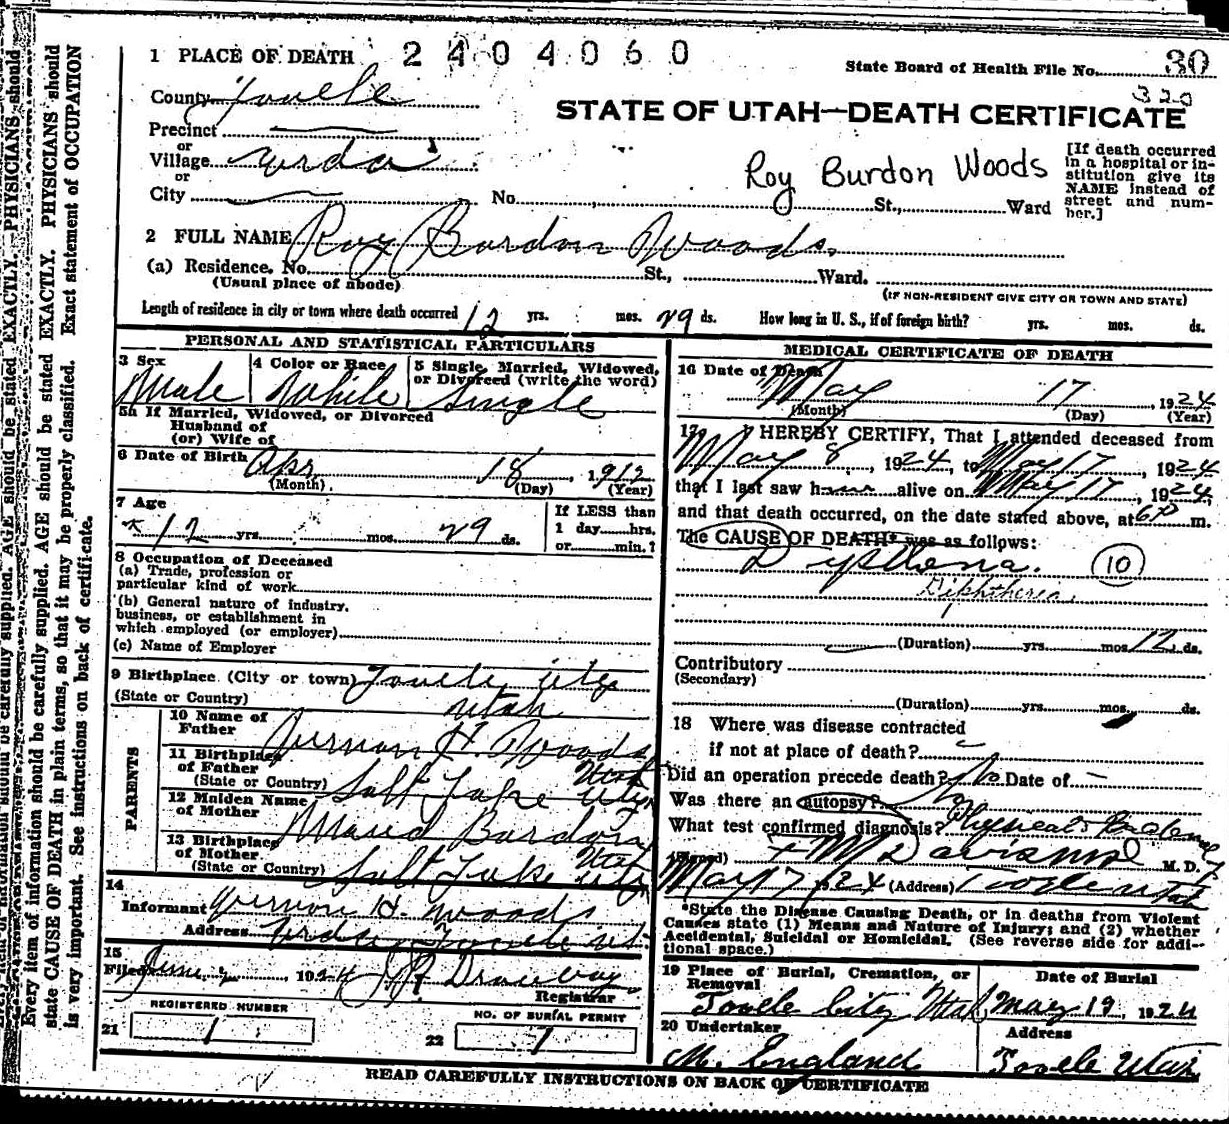 1 PLACE OF DEATH 2404060
State Board of Health File No. 30
320
County Tooele
STATE OF UTAH—DEATH CERTIFICATE
Precinct
or
Village Erda
or
City No. St., Ward
Roy Burdon Woods
[If death occurred
in a hospital or in-
stitution give its
NAME instead of
street and num-
ber.]
2 FULL NAME Roy Burdon Woods.
(a) Residence. No. St., Ward.
(Usual place of abode)
(IF NON-RESIDENT GIVE CITY OR TOWN AND STATE)
Length of residence in city or town where death occurred 12 yrs. mos. 29 ds. How long in U. S., if of foreign birth? yrs. mos. ds.
PERSONAL AND STATISTICAL PARTICULARS
3 Sex Male
4 Color or Race White
5 Single, Married, Widowed,
or Divorced (write the word)
Single
5a If Married, Widowed, or Divorced
Husband of
(or) Wife of
6 Date of Birth Apr 18, 1912
(Month) (Day) (Year)
7 Age
12 yrs. mos. 29 ds.
If LESS than
1 day......hrs.
or......min.?
8 Occupation of Deceased
(a) Trade, profession or
particular kind of work
(b) General nature of industry,
business, or establishment in
which employed (or employer)
(c) Name of Employer
9 Birthplace (City or town) Tooele City
(State or Country) Utah
PARENTS
10 Name of
Father Vernon H. Woods
11 Birthplace
of Father Utah
(State or Country) Salt Lake City
12 Maiden Name
of Mother Maud Burdon
13 Birthplace
of Mother. Utah
(State or Country) Salt Lake City
14
Informant Vernon H. Woods
Address Erda, Tooele Ut.
15
Filed June 2 1924
Registrar
REGISTERED NUMBER
21 1
NO. OF BURIAL PERMIT
22 7
MEDICAL CERTIFICATE OF DEATH
16 Date of Death
May 17, 1924
(Month) (Day) (Year)
17 I HEREBY CERTIFY, That I attended deceased from
May 8, 1924, to May 17, 1924
that I last saw him alive on May 17, 1924,
and that death occurred, on the date stated above, at 6 P m.
The CAUSE OF DEATH* was as follows:
Dipthena. 10
Diphtheria.
(Duration) yrs. mos. 12 ds.
Contributory
(Secondary)
(Duration) yrs. mos. ds.
18 Where was disease contracted
if not at place of death?
Did an operation precede death? No Date of —
Was there an autopsy? No
What test confirmed diagnosis? Physical
(Signed) F M Davis M.D.
May 17, 1924 (Address) Tooele Utah
*State the Disease Causing Death, or in deaths from Violent
Causes state (1) Means and Nature of Injury; and (2) whether
Accidental, Suicidal or Homicidal. (See reverse side for addi-
tional space.)
19 Place of Burial, Cremation, or
Removal
Tooele City Utah
Date of Burial
May 19, 1924
20 Undertaker
M. England
Address
Tooele Utah
READ CAREFULLY INSTRUCTIONS ON BACK OF CERTIFICATE
Every item of information should be carefully supplied. AGE should be stated EXACTLY. PHYSICIANS should
state CAUSE OF DEATH in plain terms, so that it may be properly classified. Exact statement of OCCUPATION
is very important. See instructions on back of certificate.